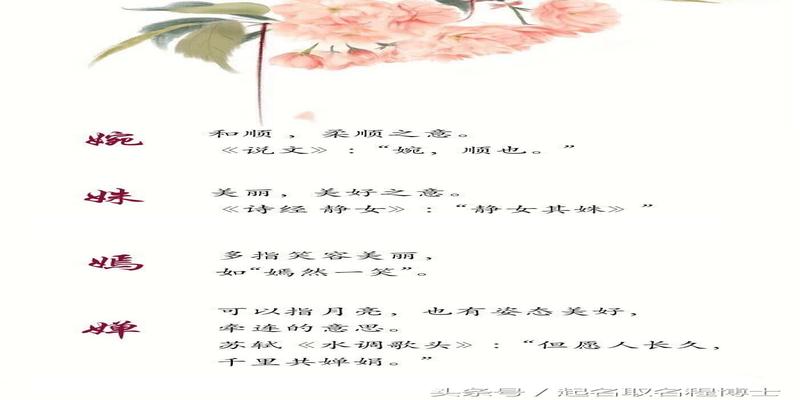 婉
和顺，柔顺之意。
《说文》：“婉，顺也。”
姝
美丽，美好之意。
《诗经 静女》：“静女其姝》”
嫣
多指笑容美丽，
如“嫣然一笑”。
婵
可以指月亮，也有姿态美好，
牵连的意思。
苏轼《水调歌头》：“但愿人长久，
千里共婵娟。”
头条号 / 起名取名程博士